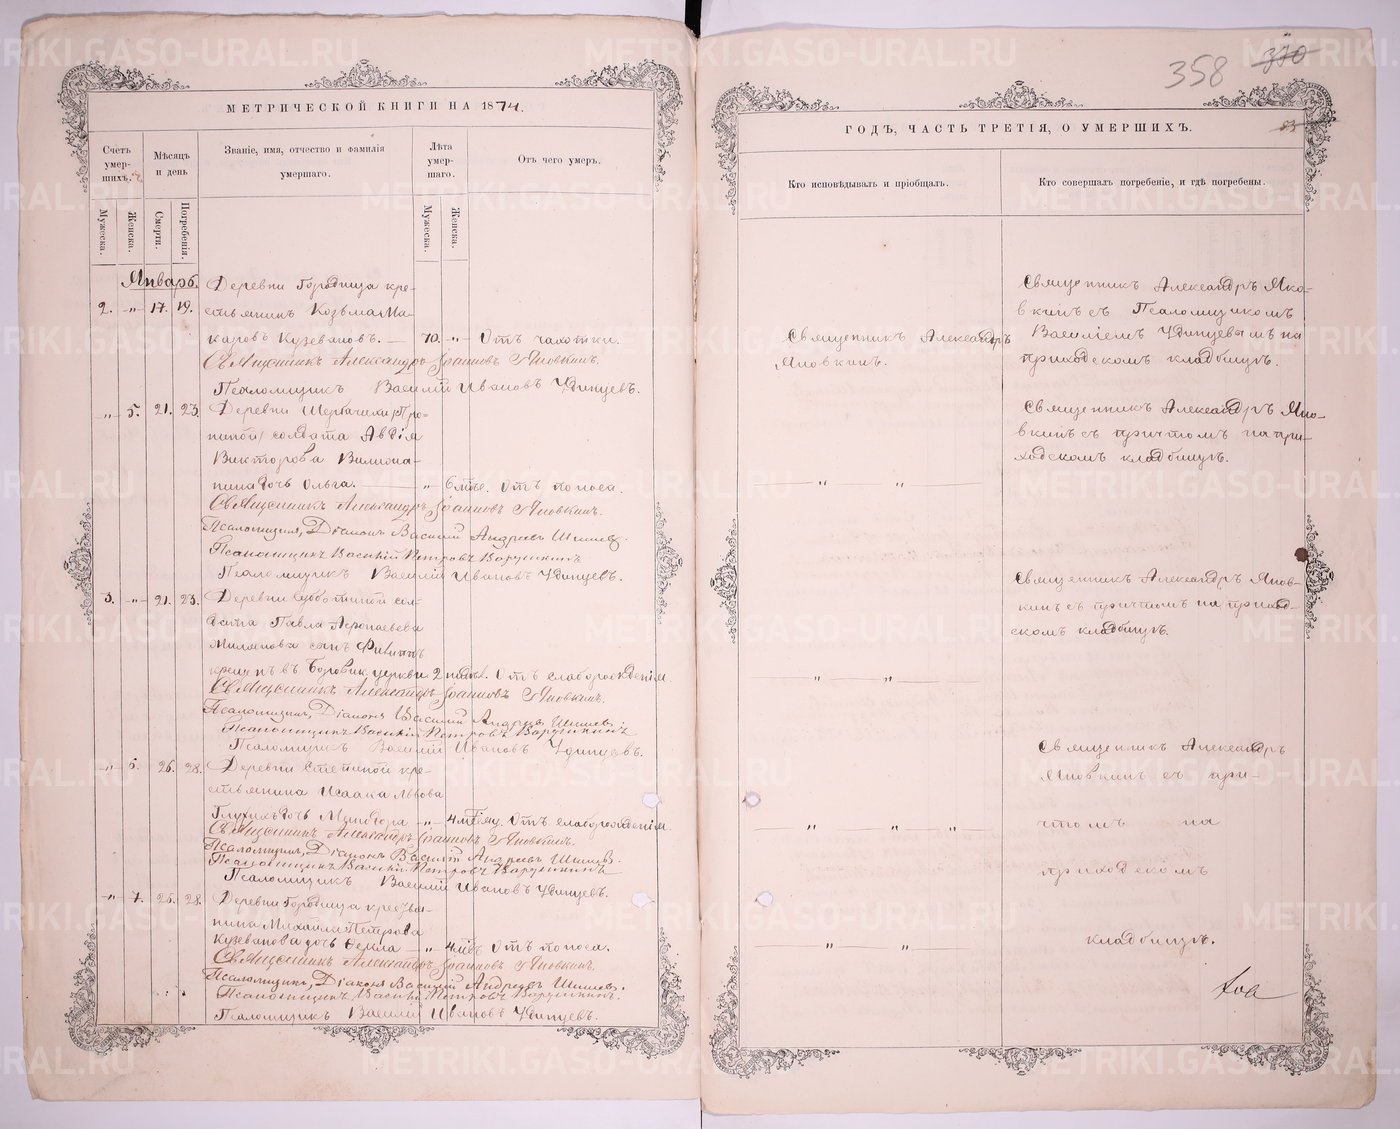 МЕТРИЧЕСКОЙ КНИГИ НА 1874.
Счетъ умер-шихъ.
Мѣсяцъ и день
Званіе, имя, отчество и фамилія умершаго.
Лѣта умер-шаго.
Отъ чего умеръ.
Мужеска.
Женска.
Смерти.
Погребенія.
Мужеска.
Женска.
Январь.
Деревни Городища кре-
2. -"- 17. 19. стьянинъ Козьма Ма-
каровъ Кузевановъ. — 70. -"- Отъ чахотки.
Священникъ Александръ Іоанновъ Яновкинъ.
Псаломщикъ Василій Ивановъ Удинцевъ.
-"- 5. 21. 23. Деревни Щербачихи /Про-
ниной/ солдата Авдія
Викторова
дочь Ольга. — " 6 Отъ поноса.
Священникъ Александръ Іоанновъ Яновкинъ.
Псаломщикъ, Діаконъ Василій Андреевъ Шишев
Псаломщикъ Василій Петровъ Варушкинъ
Псаломщикъ Василій Ивановъ Удинцевъ.
3. -"- 21. 23. Деревни Субботиной сол-
дата Павла
сынъ Филиппъ
въ церкви 2 недѣл. Отъ слаборожденія.
Священникъ Александръ Іоанновъ Яновкинъ.
Псаломщикъ, Діаконъ Василий Андреевъ Шишев
Псаломщикъ Василій Петровъ Варушкинъ
Псаломщикъ Василій Ивановъ Удинцевъ.
-"- 6. 26. 28. Деревни кре-
стьянина Исаака Львова
Глухихъ дочь -"- 4 мѣсяц. Отъ слаборожденія.
Священникъ Александръ Іоанновъ Яновкинъ.
Псаломщикъ, Діаконъ Василій Андреевъ Шишев.
Псаломщикъ Василій Петровъ Варушкинъ
Псаломщикъ Василій Ивановъ Удинцевъ.
-"- 7. 26. 28. Деревни Городища крестья-
нина Михайла Петрова
Кузеванова дочь — " 4 Отъ поноса.
Священникъ Александръ Іоанновъ Яновкинъ.
Псаломщикъ, Діаконъ Василій Андреевъ Шишев.
Псаломщикъ Василій Петровъ Варушкинъ.
Псаломщикъ Василій Ивановъ Удинцевъ.
358
ГОДЪ, ЧАСТЬ ТРЕТІЯ, О УМЕРШИХЪ.
Кто исповѣдывалъ и пріобщалъ.
Кто совершалъ погребеніе, и гдѣ погребены.
Священникъ Александръ
Яновкинъ.
Священникъ Александръ Яно-
вкинъ съ Псаломщикомъ
Василіемъ Удинцевымъ на
приходскомъ кладбищѣ.
Священникъ Александръ Яно-
вкинъ съ причтомъ на при-
ходскомъ кладбищѣ.
— " — " —
Священникъ Александръ Янов-
кинъ съ причтомъ на приход-
скомъ кладбищѣ.
— " — " —
Священникъ Александръ
Яновкинъ съ при-
чтомъ на
— " — " — "
приходскомъ
кладбищѣ.
" — " —
METRIKI.GASO-URAL.RU